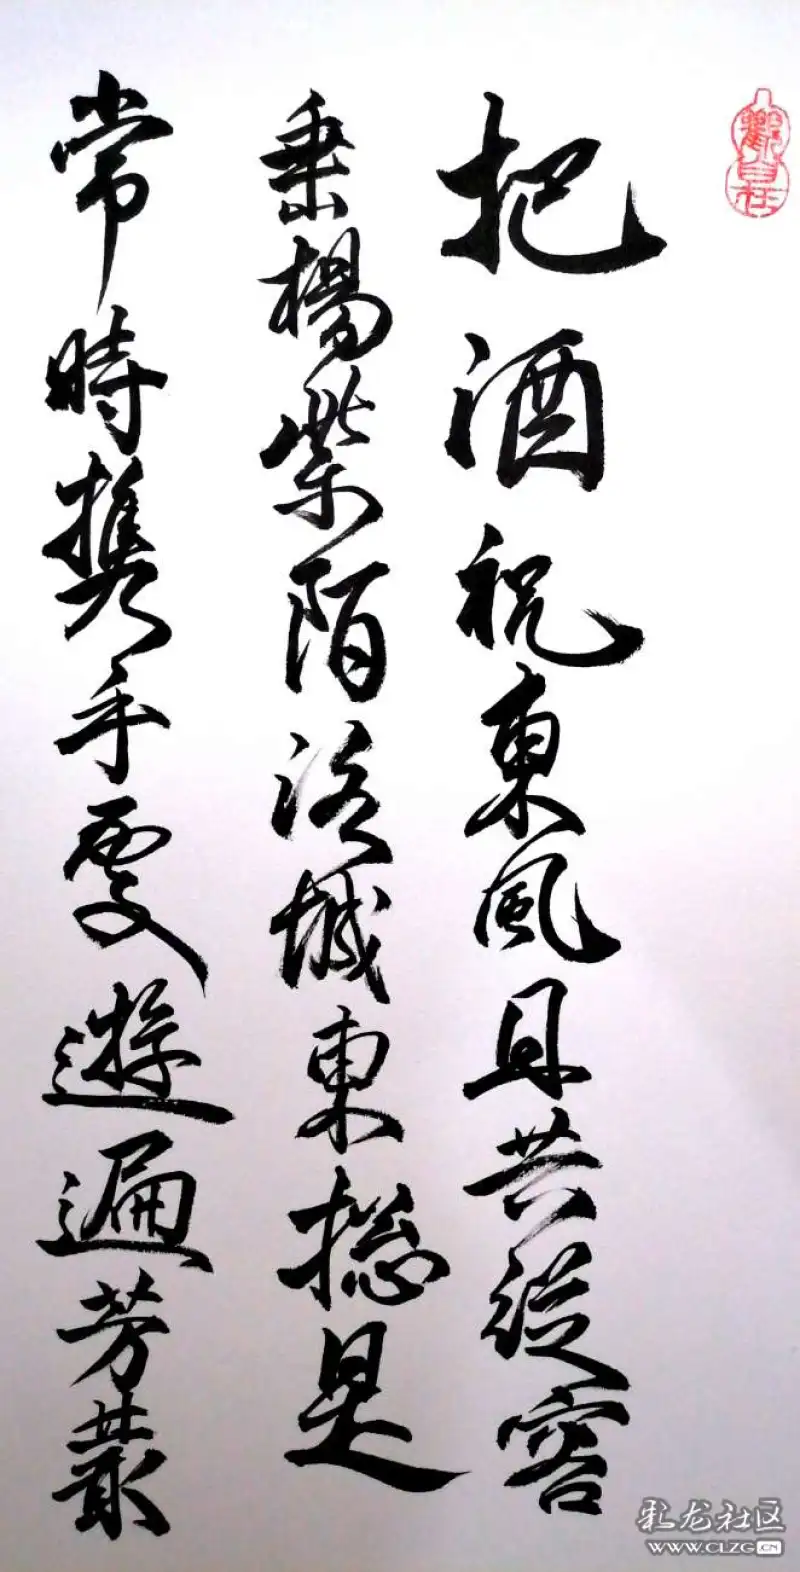 把酒祝東風且共從容
垂楊紫陌洛城東摠是
常時携手處遊遍芳叢
彩龙社区
WWW.CLZG.CN